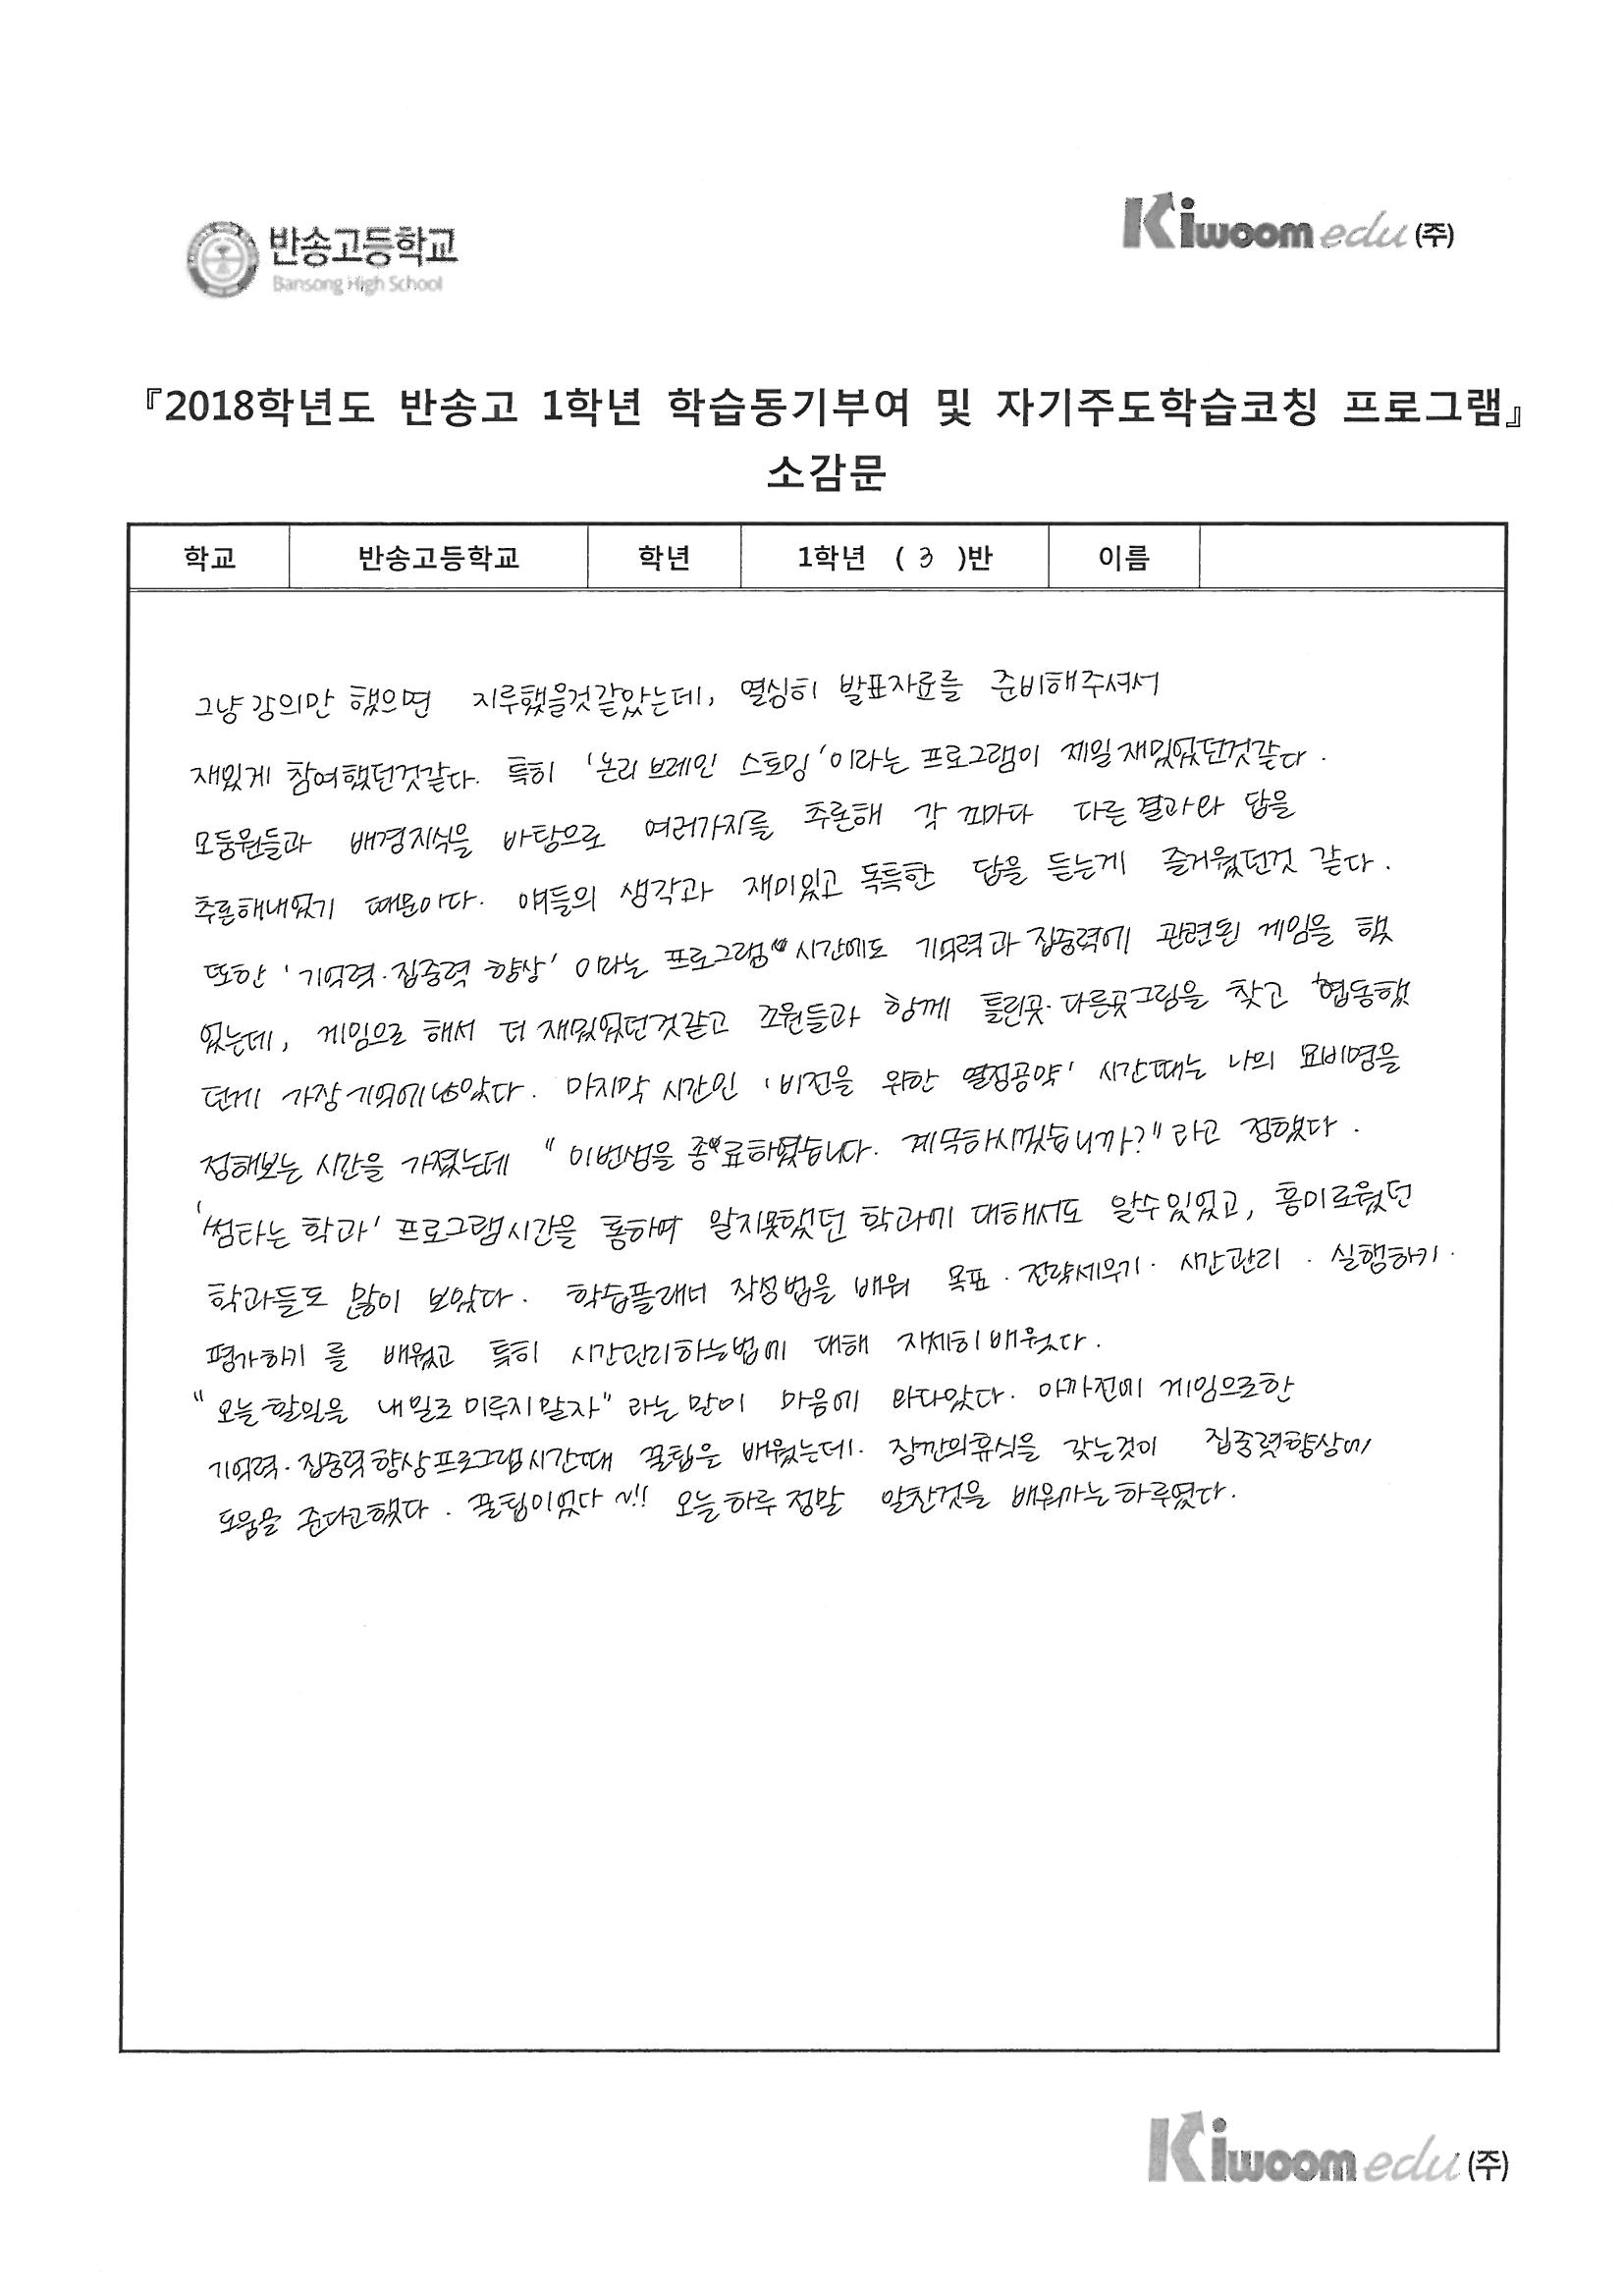 반송고등학교
Bansong High School
Kiwoom edu (주)
『2018학년도 반송고 1학년 학습동기부여 및 자기주도학습코칭 프로그램』
소감문
학교 반송고등학교 학년 1학년 ( 3 )반 이름
그냥 강의만 했으면 지루했을것같았는데, 열심히 발표자료를 준비해주셔서
재밌게 참여했던것같다. 특히 '논리 브레인 스토밍'이라는 프로그램이 제일 재밌었던것같다.
모둠원들과 배경지식을 바탕으로 여러가지를 추론해 각 조마다 다른 결과와 답을
추론해내었기 때문이다. 얘들의 생각과 재미있고 독특한 답을 듣는게 즐거웠던것 같다.
또한 '기억력·집중력 향상' 이라는 프로그램 시간에도 기억력과 집중력에 관련된 게임을 했
었는데, 게임으로 해서 더 재밌었던것같고 조원들과 함께 틀린곳·다른곳그림을 찾고 협동했
던게 가장 기억에남았다. 마지막 시간인 '비전을 위한 열정공약' 시간때는 나의 묘비명을
정해보는 시간을 가졌는데 "이번생을 종료하였습니다. 계속하시겠습니까?"라고 정했다.
'썸타는 학과' 프로그램시간을 통하여 알지못했던 학과에 대해서도 알수있었고, 흥미로웠던
학과들도 많이 보았다. 학습플래너 작성법을 배워 목표·전략세우기·시간관리·실행하기·
평가하기 를 배웠고 특히 시간관리하는법에 대해 자세히배웠다.
"오늘 할일을 내일로 미루지말자"라는 말이 마음에 와다았다. 아까전에 게임으로한
기억력·집중력향상프로그램시간때 꿀팁을 배웠는데. 잠깐의휴식을 갖는것이 집중력향상에
도움을 준다고했다. 꿀팁이었다~!! 오늘하루 정말 알찬것을 배워가는하루였다.
Kiwoom edu (주)